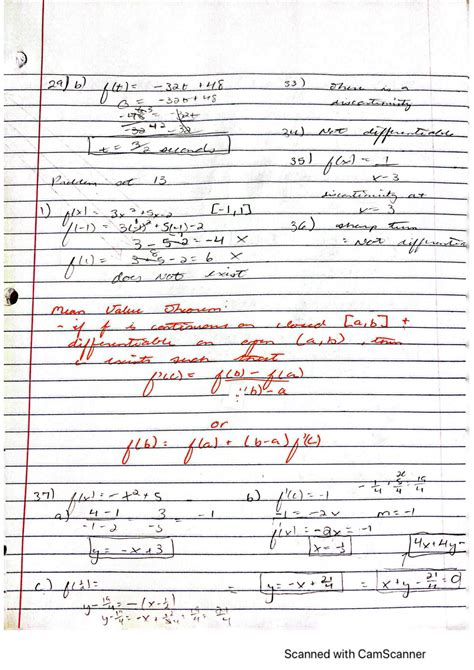 29) b) f(t) = -32t + 48
0 = -32t + 48
-48 = -32t
-32 -32
t = 3/2 seconds
33) there is a
discontinuity
34) Not differentiable
35) f(x) = 1
x-3
discontinuity at
x = 3
36) sharp turn
= Not differentia
Problem set 13
1) f(x) = 3x² + 5x - 2 [-1,1]
f(-1) = 3(-1)² + 5(-1) - 2
3 - 5 - 2 = -4 X
f(1) = 
= 6 X
does not exist
Mean Value Theorem:
- if f is continuous on closed [a,b] +
differentiable on open (a,b), then
c exists such that
f'(c) = f(b) - f(a)
b - a
or
f(b) = f(a) + (b-a) f'(c)
37) f(x) = -x² + 5
a) 4-1 3 = -1
-1-2 -3
y = -x + 3
b) f'(c) = -1
-1 = -2x m = -1
f'(x) = -2x = -1
4x+4y-
c) f(1/2) =
= y = -x + 21/4 = x + y - 21/4 = 0
y - 19/4 = -(x - 1/2)
Scanned with CamScanner